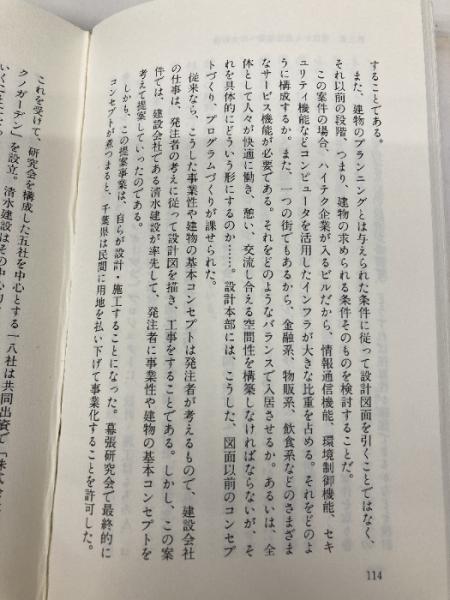 することである。
また、建物のプランニングとは与えられた条件に従って設計図面を引くことではなく、
それ以前の段階、つまり、建物の求められる条件そのものを検討することだ。
この案件の場合、ハイテク企業が入るビルだから、情報通信機能、環境制御機能、セキ
ュリティ機能などコンピュータを活用したインフラが大きな比重を占める。それをどのよ
うに構成するか。また、一つの街でもあるから、金融系、物販系、飲食系などのさまざま
なサービス機能が必要である。それをどのようなバランスで入居させるか。あるいは、全
体として人々が快適に働き、憩い、交流し合える空間性を構築しなければならないが、そ
れを具体的にどういう形にするのか……。設計本部には、こうした、図面以前のコンセプ
トづくり、プログラムづくりが課せられた。
従来なら、こうした事業性や建物の基本コンセプトは発注者が考えるもので、建設会社
の仕事は、発注者の考えに従って設計図を描き、工事をすることである。しかし、この案
件では、建設会社である清水建設が率先して、発注者に事業性や建物の基本コンセプトを
考えて提案していったのである。
しかも、この提案事業は、自らが設計・施工することになった。幕張研究会で最終的に
コンセプトが煮つまると、千葉県は民間に用地を払い下げて事業化することを許可した。
これを受けて、研究会を構成した五社を中心とする一八社は共同出資で「株式会社
クノガーデン」を設立。清水建設はその中心
114